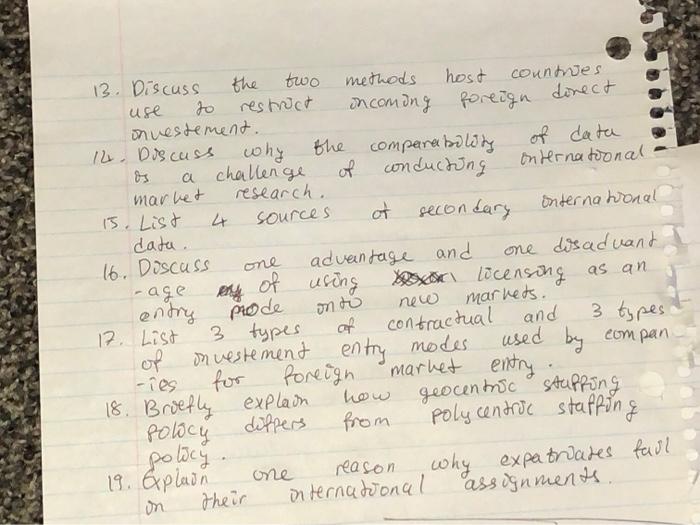 13. Discuss the two methods host countries
use to restrict incoming foreign direct
investement.
14. Discuss why the comparability of data
is a challenge of conducting international
market research.
15. List 4 sources of secondary international
data.
16. Discuss one advantage and one disadvant
-age of using licensing as an
entry mode into new markets.
17. List 3 types of contractual and 3 types
of investement entry modes used by compan
-ies for foreign market entry.
18. Briefly explain how geocentric staffing
policy differs from polycentric staffing
policy.
19. Explain one reason why expatriates fail
in their international assignments.